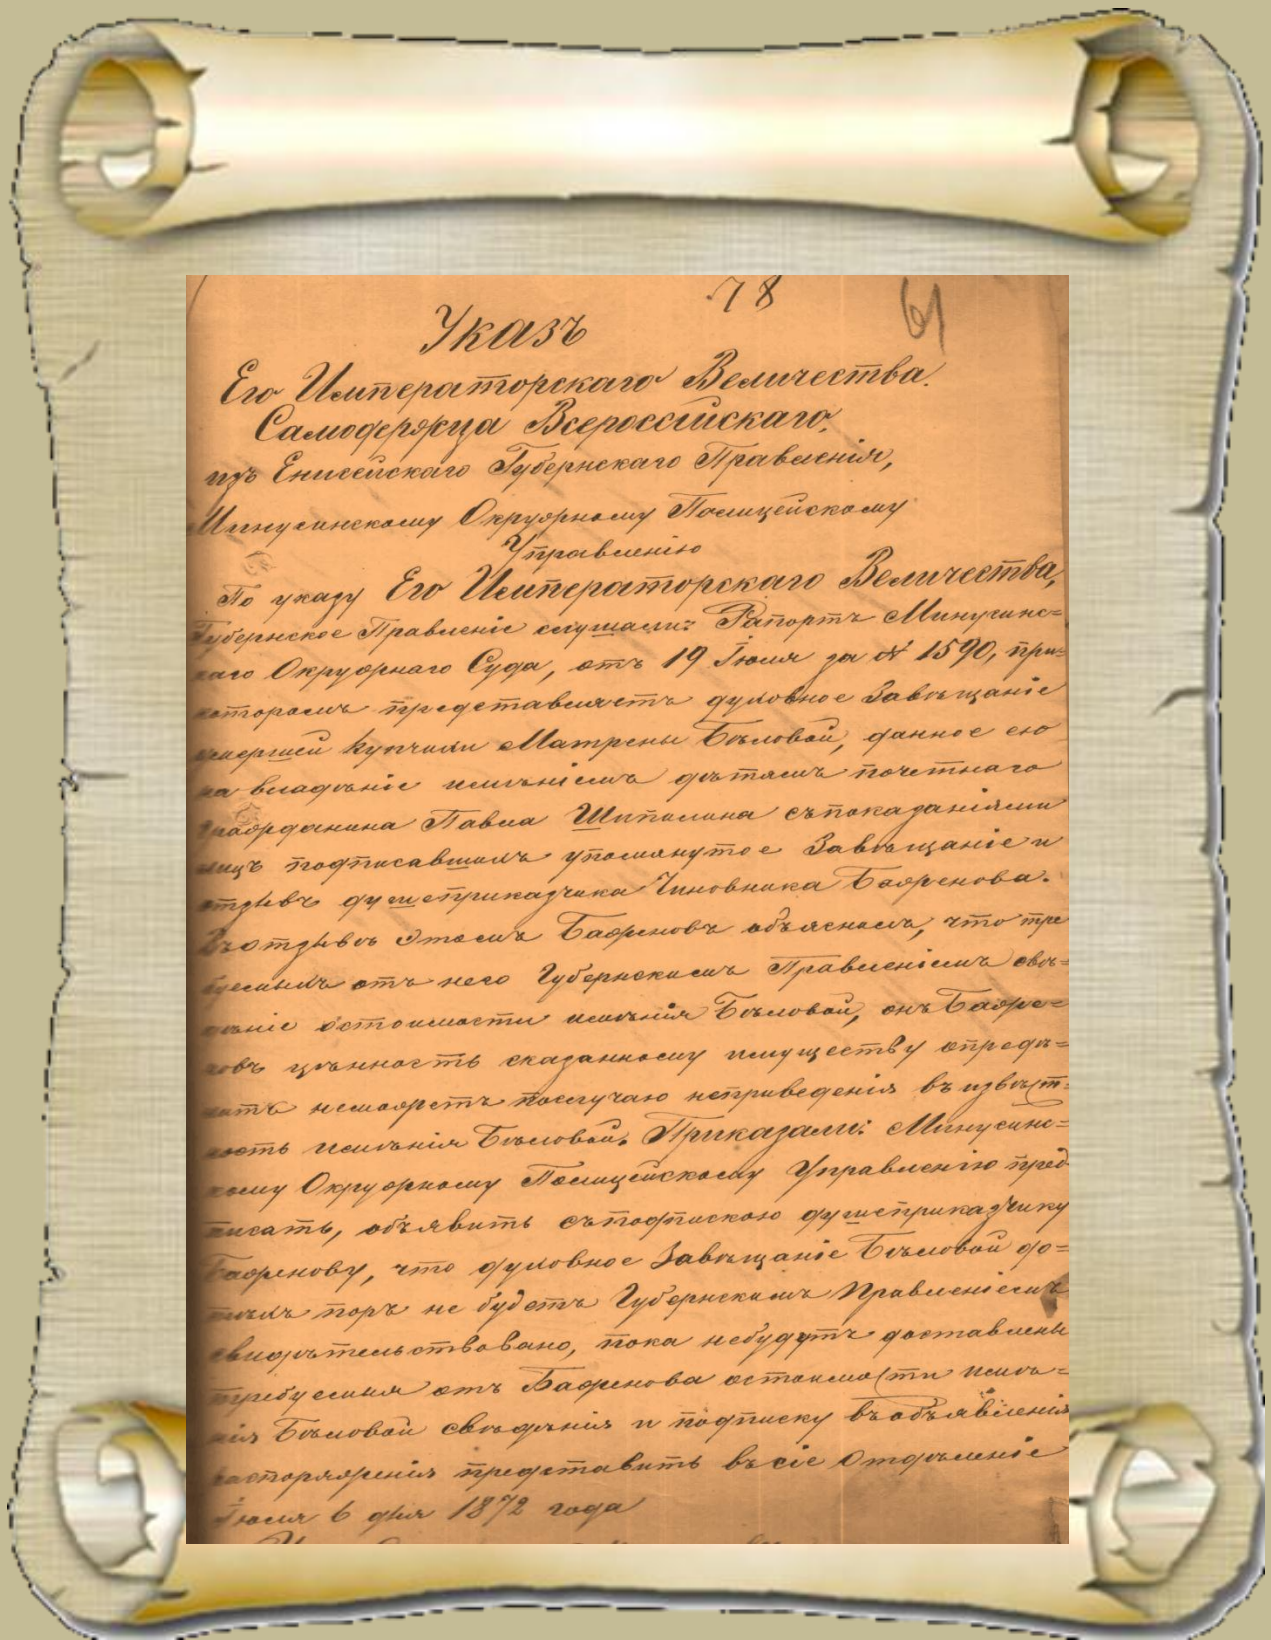 78 61
Указъ
Его Императорскаго Величества.
Самодержца Всероссійскаго,
изъ Енисейскаго Губернскаго Правленія,
Минусинскому Окружному Полицейскому
Управленію
По указу Его Императорскаго Величества,
Губернское Правленіе слушали: Рапортъ Минусинс=
каго Окружнаго Суда, отъ 19 Іюля за № 1590, при=
которомъ представляетъ духовное Завѣщаніе
умершей Купчихи Матрены Бѣловой, данное ею
на владѣніе имѣніемъ дѣтямъ почетнаго
гражданина Павла Шипилина съпоказаніями
лицъ подписавшихъ упомянутое Завѣщаніе и
отзывъ душеприказчика Чиновника Баженова.
Въотзывѣ этомъ Баженовъ объяснилъ, что тре
буемыхъ отъ него Губернскимъ Правленіемъ свѣ=
деніе остоимости имѣнія Бѣловой, онъ Баже=
новъ цѣнность сказанному имуществу опредѣ=
лить неможетъ послучаю неприведенія въ извѣст=
ность имѣнія Бѣловой. Приказали: Минусинс=
кому Окружному Полицейскому Управленію пред
писать, объявить съподпискою душеприказчику
Баженову, что духовное Завѣщаніе Бѣловой до=
тѣхъ поръ не будетъ Губернскимъ Правленіемъ
свидѣтельствовано, пока небудутъ доставлены
требуемыя отъ Баженова остоимости имѣ=
нія Бѣловой свѣдѣнія и подписку въобъявленіи
распоряженія представить въсіе Отдѣленіе
Іюля 6 дня 1872 года